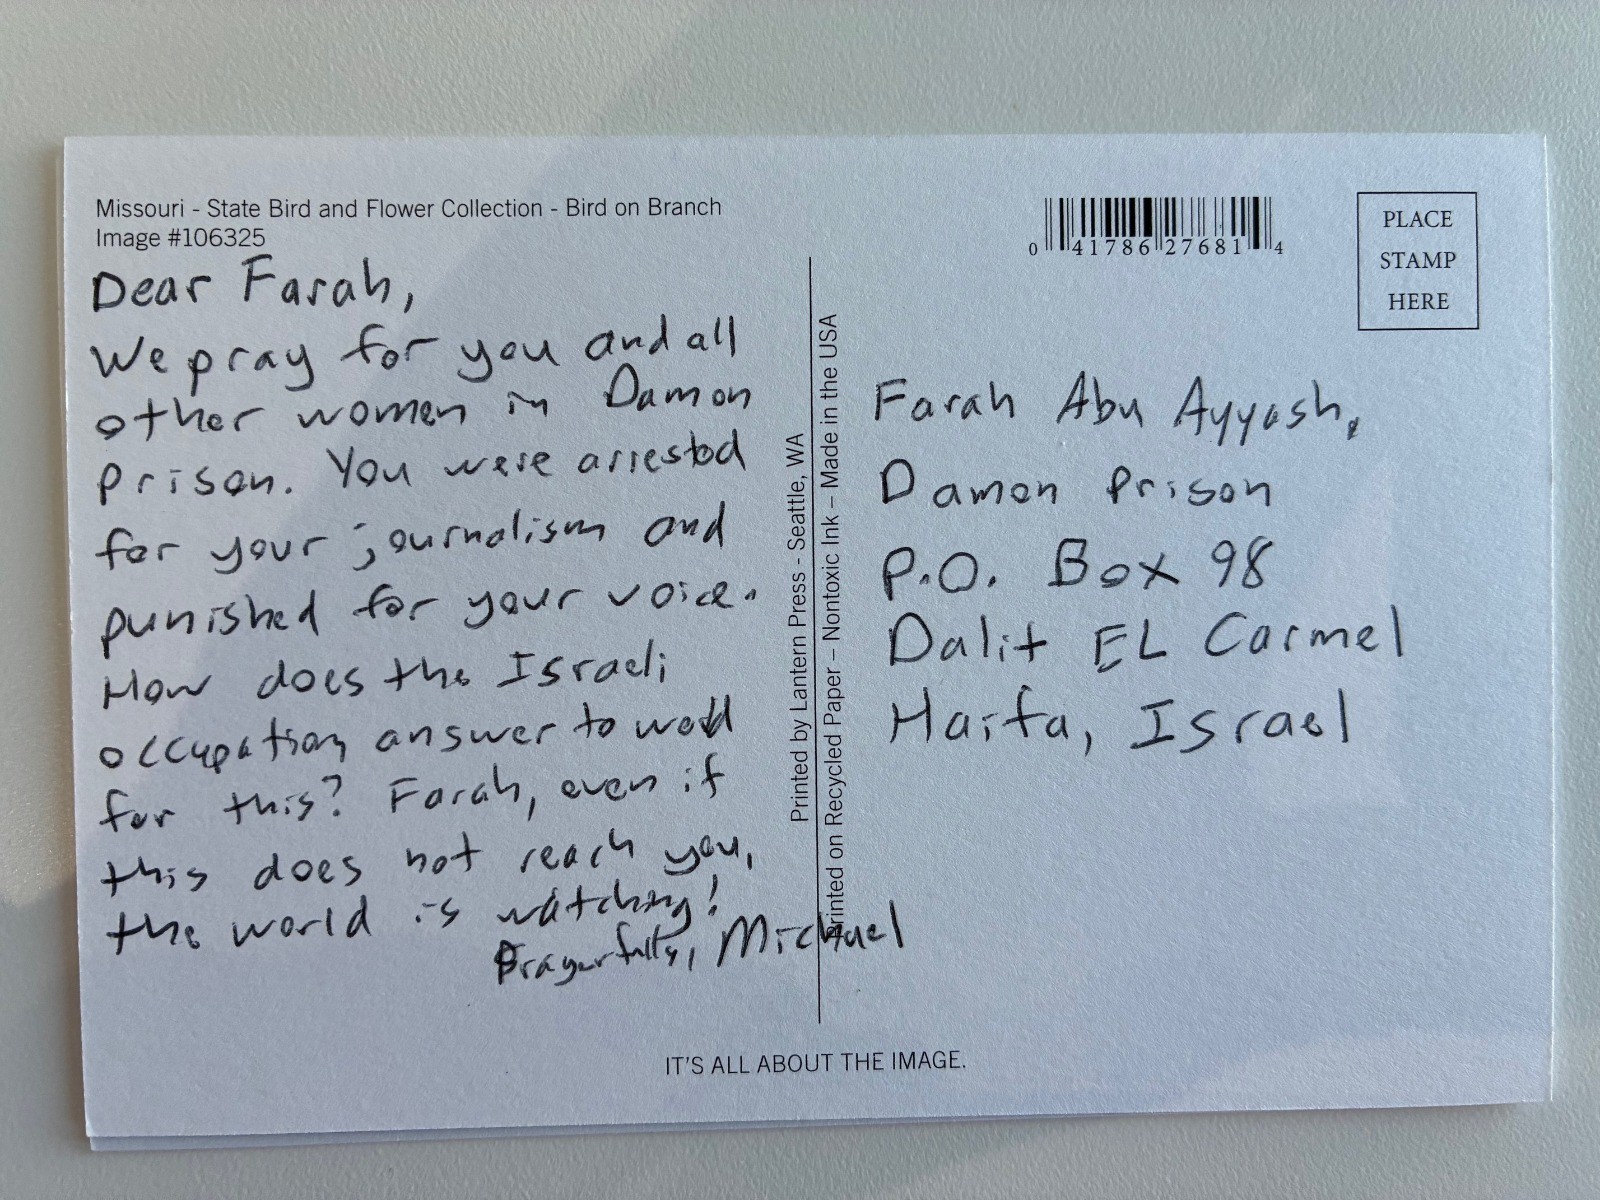 Missouri - State Bird and Flower Collection - Bird on Branch
Image #106325
Dear Farah,
We pray for you and all
other women in Damon
Prison. You were arrested
for your journalism and
punished for your voice.
How does the Israeli
occupation answer to world
for this? Farah, even if
this does not reach you,
the world is watching!
Prayerfully, Michael
Printed by Lantern Press - Seattle, WA
Printed on Recycled Paper – Nontoxic Ink – Made in the USA
0 41786 27681 4
PLACE
STAMP
HERE
Farah Abu Ayyash,
Damon Prison
P.O. Box 98
Dalit EL Carmel
Haifa, Israel
IT'S ALL ABOUT THE IMAGE.